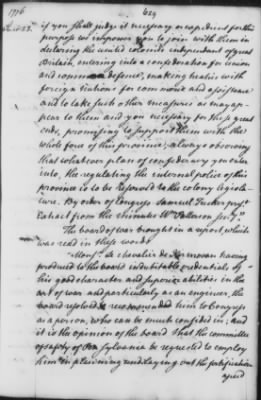 1776
629
if you shall judge it necessary or expedient for this
purpose we impower you to join with them in
declaring the united colonies independent of great
Britain, entering into a confederation for union
and common defence, making treaties with
foreign nations for commerce and assistance
and to take such other measures as may ap-
pear to them and you necessary for these great
ends, promising to support them with the
whole force of this province; always observing
that whatever plan of confederacy you enter
into, the regulating the internal police of this
province is to be reserved to the colony legisla-
ture. By order of Congress Samuel Tucker prest.
Extract from the minutes Wm. Paterson secy."
The board of war brought in a report, which
was read in these words
"Monsr. de chevalier de Kermovan having
produced to the board indubitable credentials of
his good character and superior abilities in the
art of war and particularly as an engineer, the
board resolved to recommend him to Congress
as a person, who can be much confided in; and
it is the opinion of the board that the committee
of safety of Pensylvania be requested to employ
him in planning and laying out the fortification
agreed